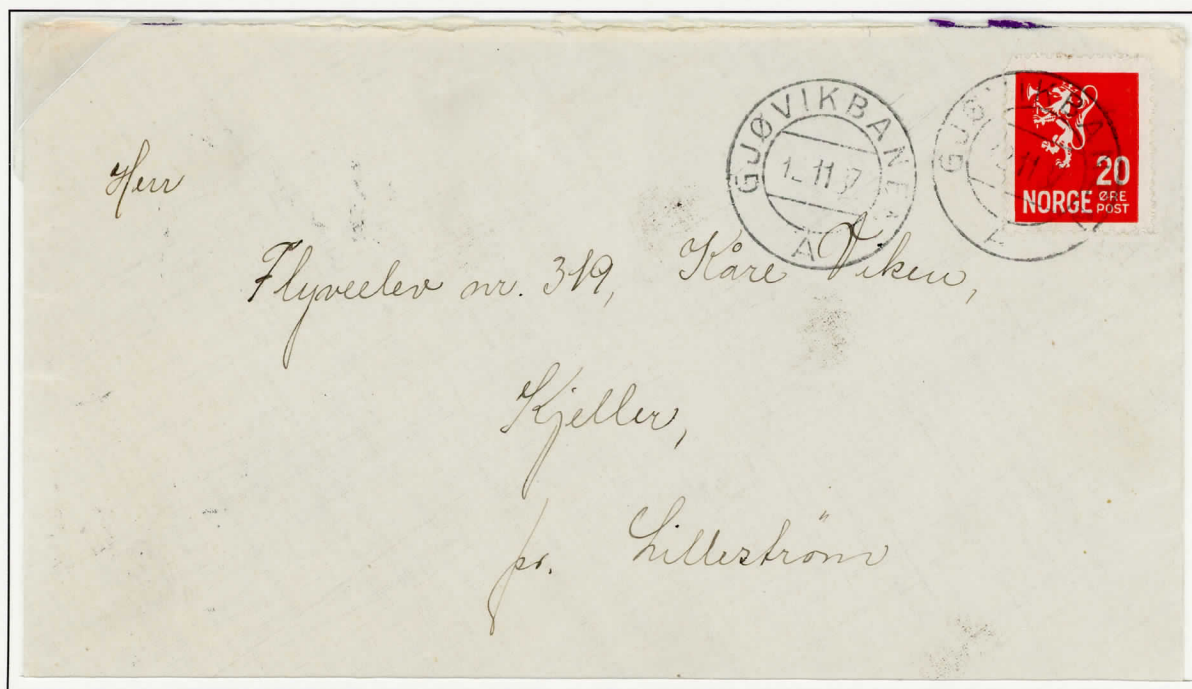 GJØVIKBANEN
11
A
GJØVIKBANEN
11
A
20
NORGE ØRE POST
Herr
Flyveelev nr. 319, Kåre Viken,
Kjeller,
pr. Lilleström